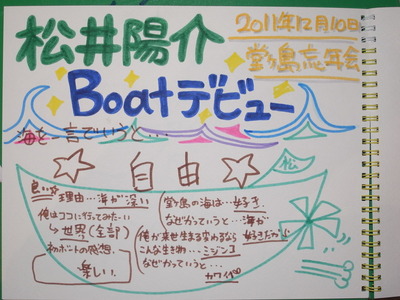 松井陽介
2011年12月10日
堂ヶ島忘年会
Boatデビュー
海を一言でいうと・・・
☆自由☆
松
良い☆理由…海が深い
俺はココに行ってみたい
↳世界(全部)
初ボートの感想、
楽しい、
堂ヶ島の海は…好き、
なぜかっていうと…海が
好きだから
俺が来世生まれ変わるなら
こんな生き物…ミジンコ
なぜかっていうと…
カワイイ